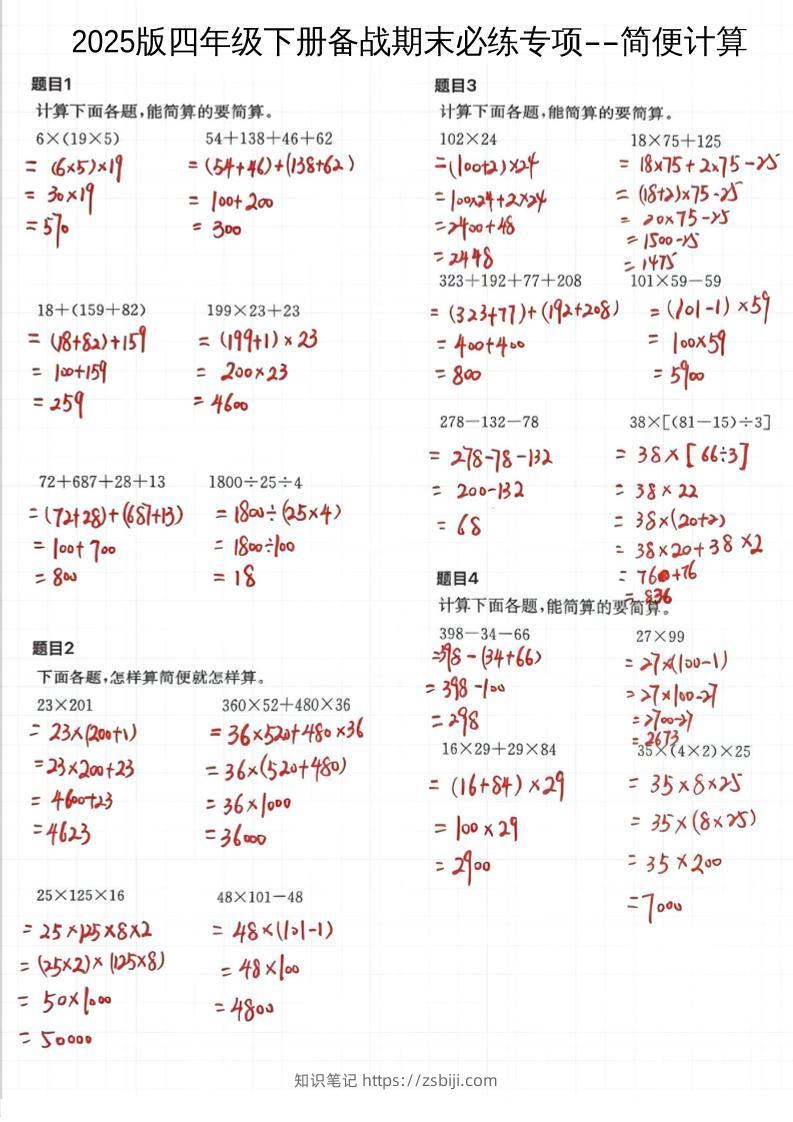 2025版四年级下册备战期末必练专项--简便计算
题目1
计算下面各题,能简算的要简算。
6×(19×5)
= (6×5)×19
= 30×19
=570
54+138+46+62
=(54+46)+(138+62)
= 100+200
= 300
18+(159+82)
= (18+82)+159
= 100+159
=259
199×23+23
= (199+1)×23
= 200×23
=4600
72+687+28+13
=(72+28)+(687+13)
= 100+700
= 800
1800÷25÷4
=1800÷(25×4)
= 1800÷100
= 18
题目2
下面各题,怎样算简便就怎样算。
23×201
= 23×(200+1)
=23×200+23
= 4600+23
=4623
360×52+480×36
= 36×520+480×36
= 36×(520+480)
= 36×1000
=36000
25×125×16
= 25×125×8×2
= (25×2)×(125×8)
= 50×1000
= 50000
48×101-48
= 48×(101-1)
= 48×100
=4800
题目3
计算下面各题,能简算的要简算。
102×24
=(100+2)×24
=100×24+2×24
=2400+48
=2448
18×75+125
= 18×75+2×75-25
= (18+2)×75-25
= 20×75-25
=1500-25
= 1475
323+192+77+208
= (323+77)+(192+208)
= 400+400
= 800
101×59-59
= (101-1)×59
= 100×59
= 5900
278-132-78
= 278-78-132
= 200-132
= 68
38×[(81-15)÷3]
= 38×[66÷3]
= 38×22
= 38×(20+2)
= 38×20+38×2
= 760+76
= 836
题目4
计算下面各题,能简算的要简算。
398-34-66
=398-(34+66)
= 398-100
= 298
27×99
= 27×(100-1)
= 27×100-27
= 2700-27
= 2673
16×29+29×84
= (16+84)×29
= 100×29
= 2900
35×(4×2)×25
= 35×8×25
= 35×(8×25)
= 35×200
=7000
知识笔记 https://zsbiji.com